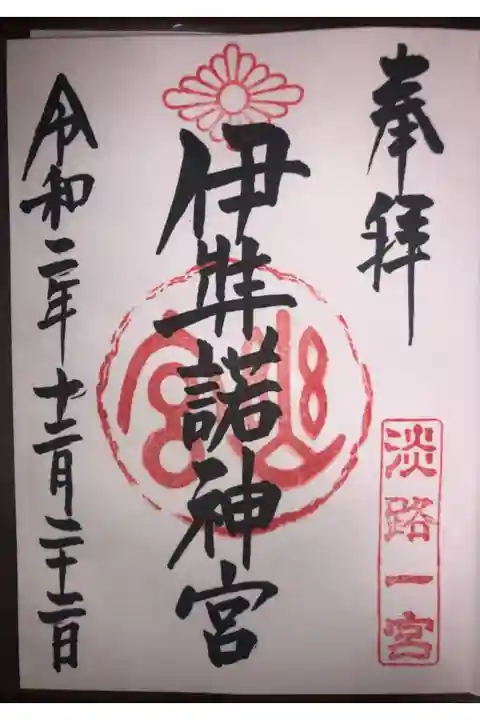 奉拝
淡路一宮
伊弉諾神宮
令和二年十二月二十二日